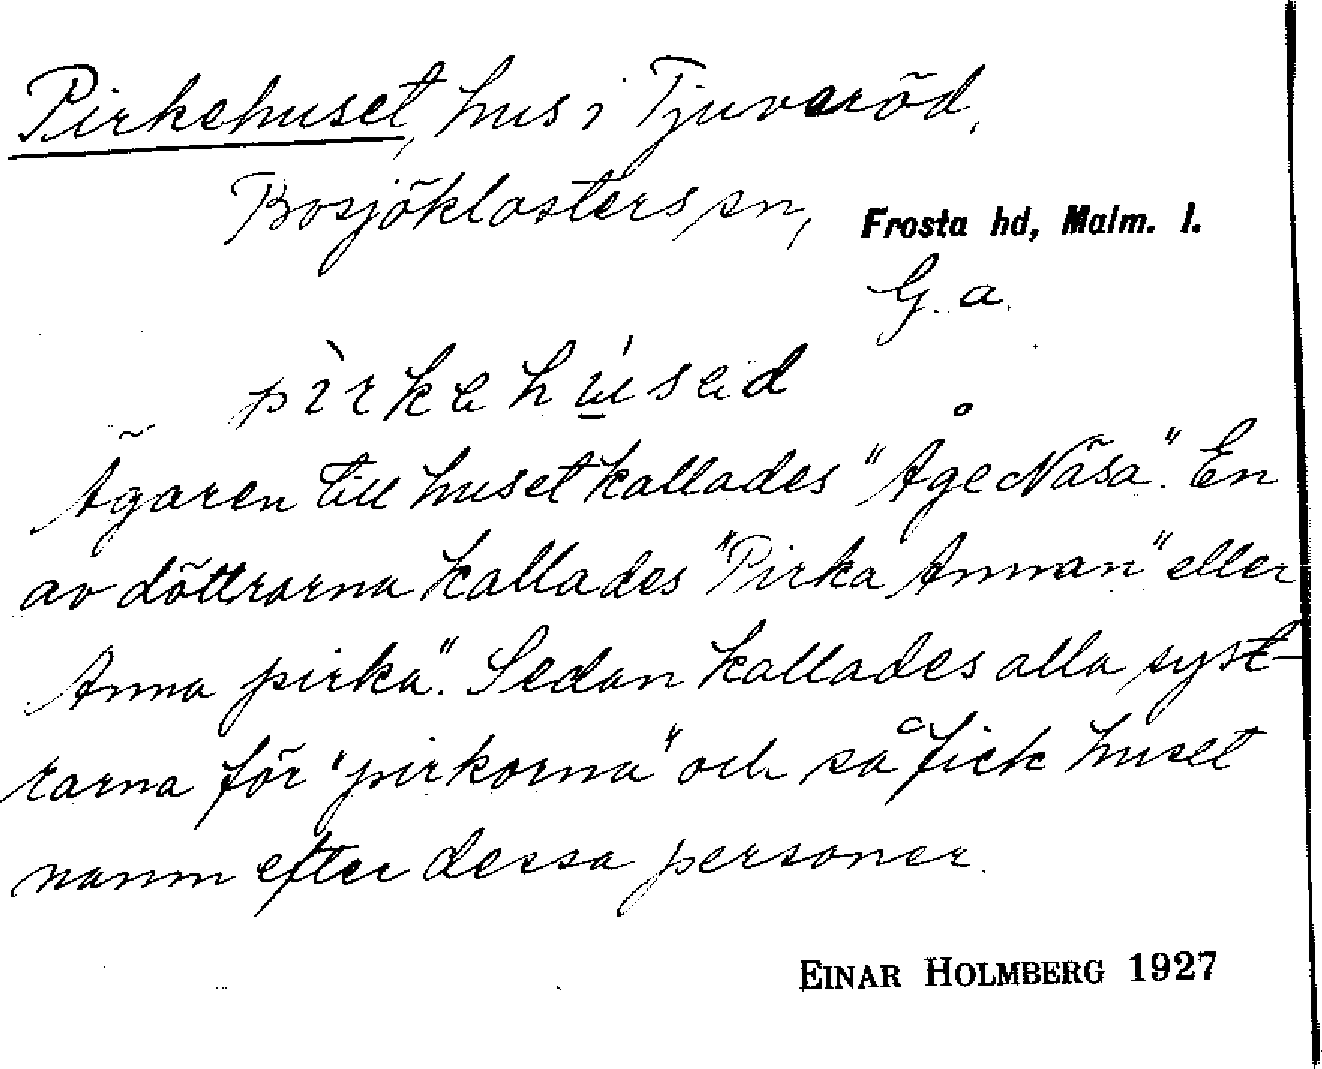 Pirkehuset, hus i Tjuvaröd,
Bosjöklosters sn, Frosta hd, Malm. l.
G. a.
pìrkehúsed
Ägaren till huset kallades "Åge Näsa". En
av döttrarna kallades "Pirka Annan" eller
Anna pirka". Sedan kallades alla syst-
rarna för "pirkorna" och så fick huset
namn efter dessa personer.
EINAR HOLMBERG 1927